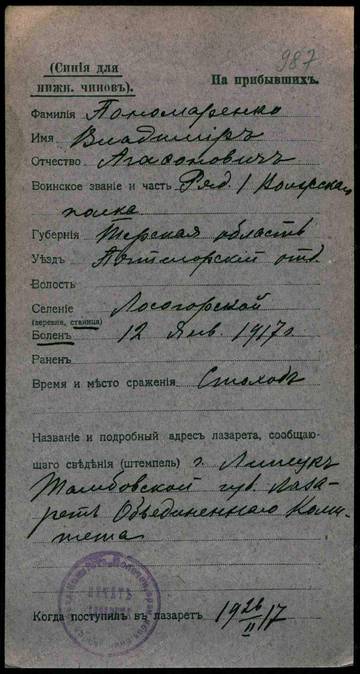 987
(Синія для
нижн. чиновъ).
На прибывшихъ.
Фамилія Пономаренко
Имя Владиміръ
Отчество Агафоновичъ
Воинское званіе и часть Ряд. 1
полка
Губернія Терская область
Уѣздъ отд.
Волость
Селеніе Лосогорской
(деревня, станица)
Боленъ 12 Янв. 1917 г.
Раненъ
Время и мѣсто сраженія Стоходъ
Названіе и подробный адресъ лазарета, сообщаю-
щаго свѣдѣнія (штемпель) г. Липецкъ
Тамбовской губ. Лаза-
ретъ Объединеннаго Коми-
тета
ПЕЧАТЬ
Когда поступилъ въ лазаретъ 19 26/II 17